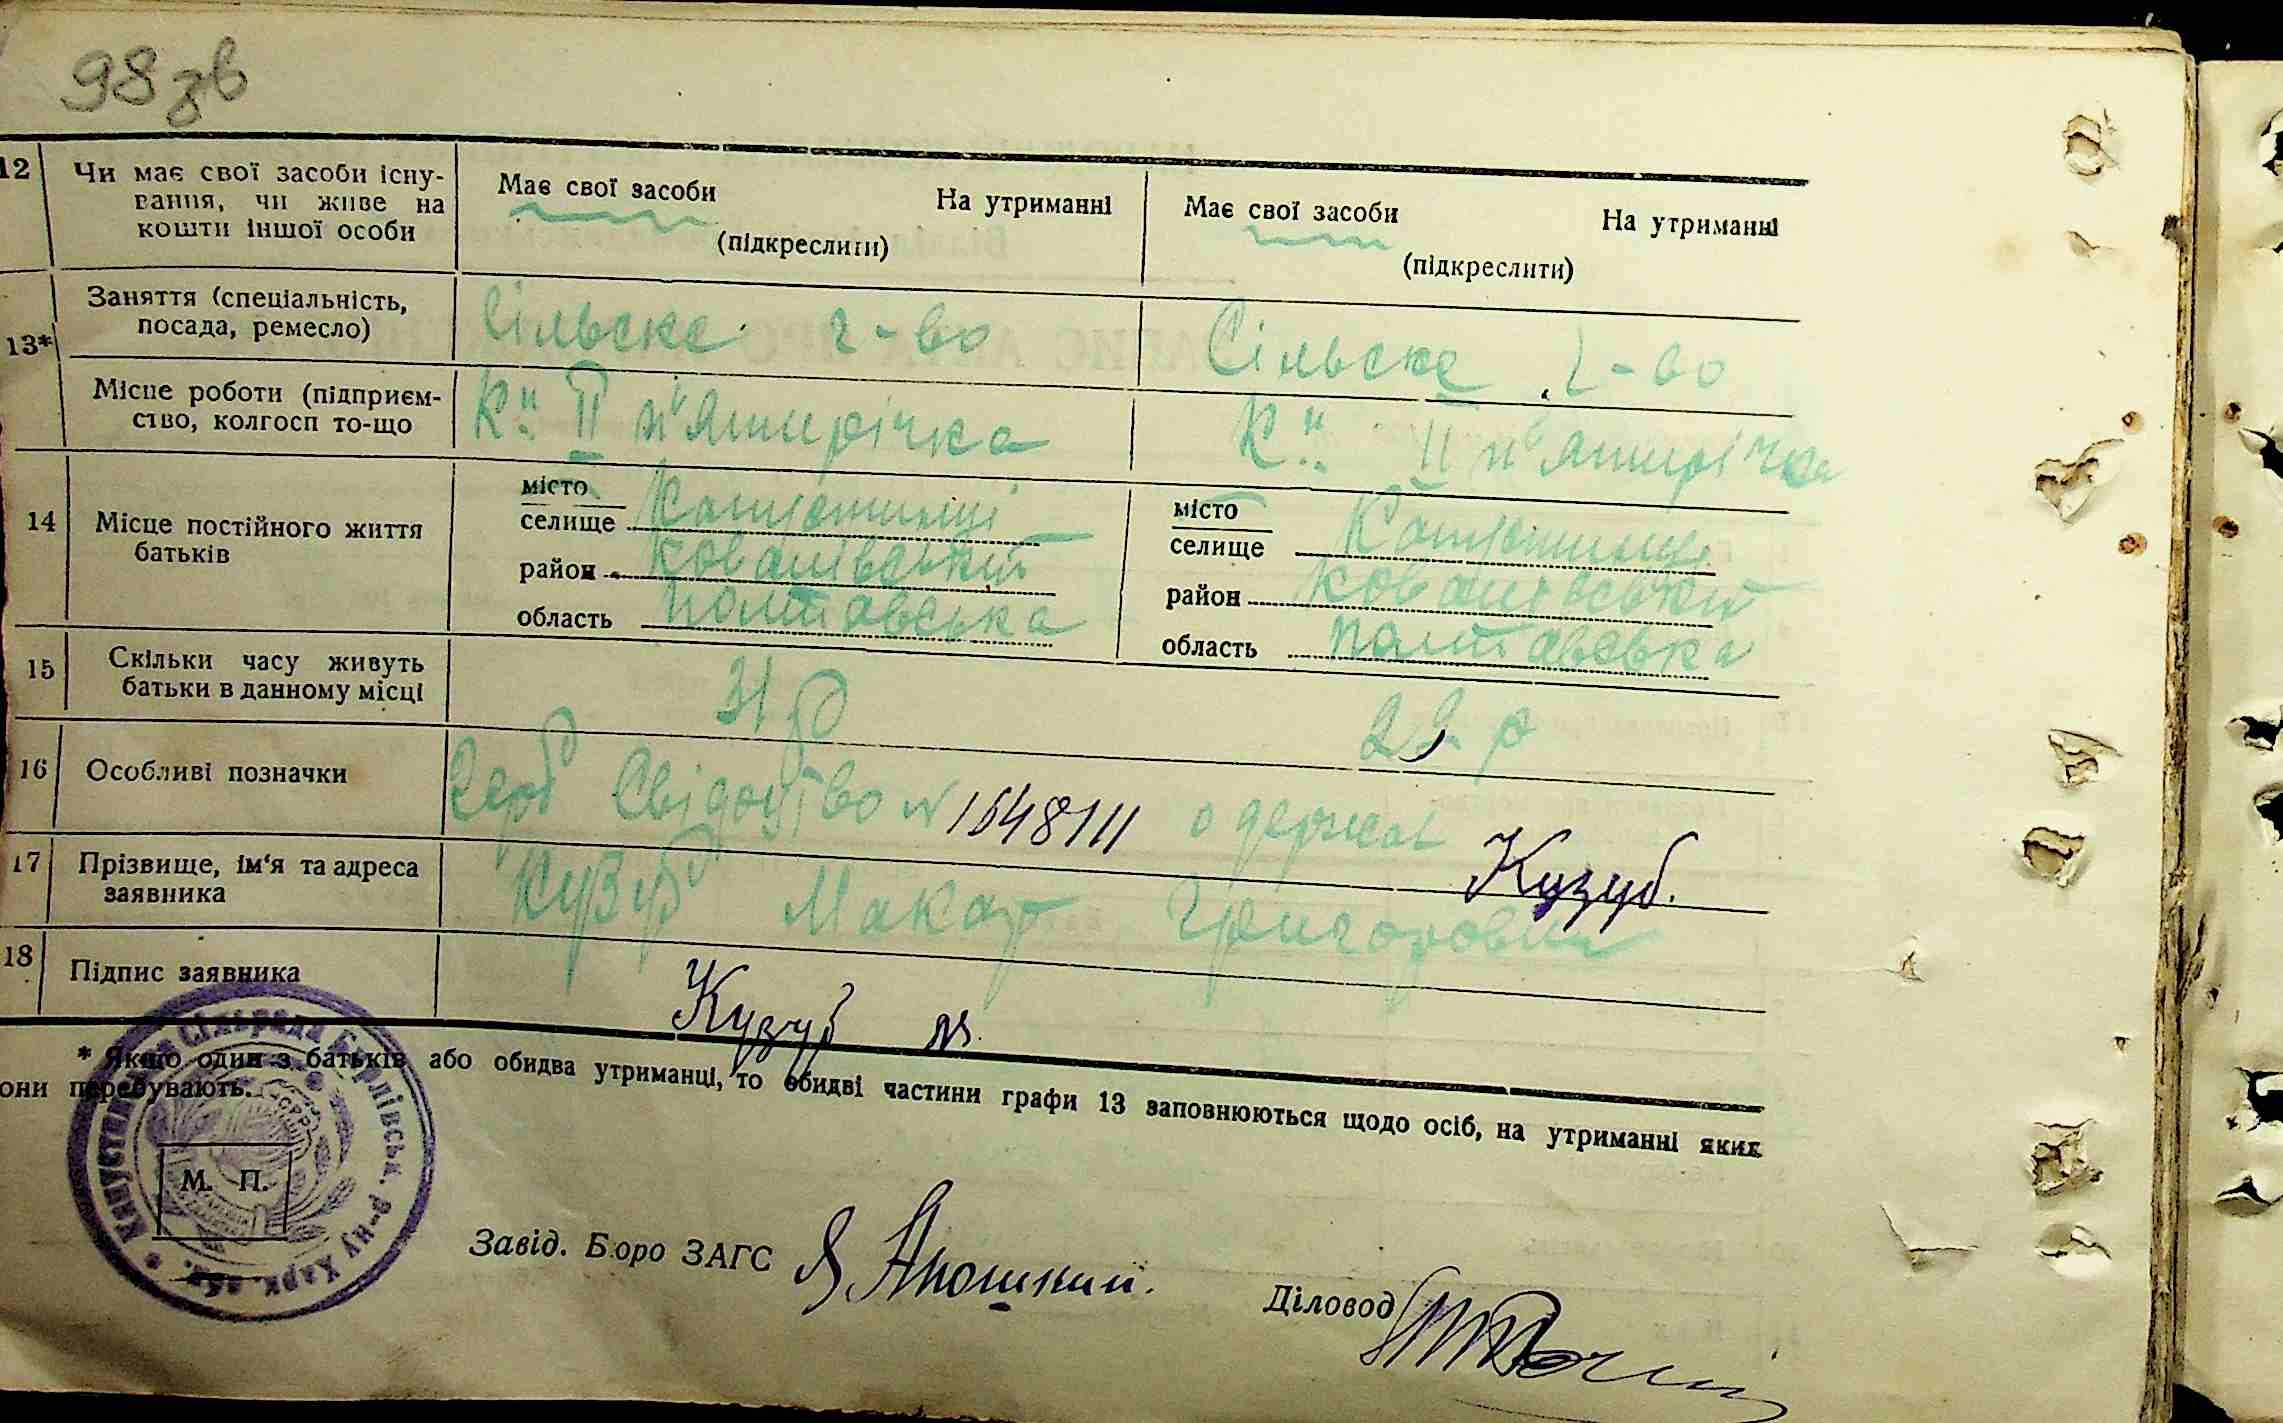 98 зв
12 Чи має свої засоби існу-
вання, чи живе на
кошти іншої особи
Має свої засоби На утриманні
(підкреслити)
Має свої засоби На утриманні
(підкреслити)
13* Заняття (спеціальність,
посада, ремесло)
Сільске г-во
Сільске г-во
Місце роботи (підприєм-
ство, колгосп то-що
К-п II п'ятирічка
К-п II п'ятирічка
14 Місце постійного життя
батьків
місто
селище Капустинці
район
область Полтавська
місто
селище Капустинці
район
область Полтавська
15 Скільки часу живуть
батьки в данному місці
31 р
22 р
16 Особливі позначки
Герб Свідоцтво № 1648111 одержав Кузуб.
17 Прізвище, ім'я та адреса
заявника
Кузуб Макар Григорович
18 Підпис заявника
Кузуб М.
* Якщо один з батьків або обидва утриманці, то обидві частини графи 13 заповнюються щодо осіб, на утриманні яких
они перебувають.
М. П.
Завід. Бюро ЗАГС
Діловод